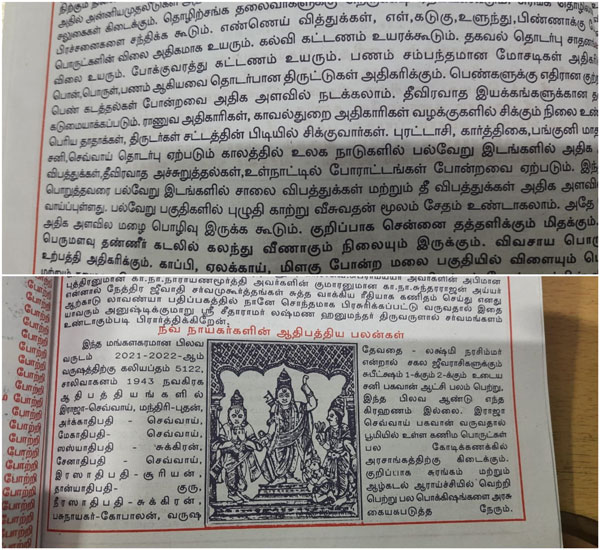 நிற்கும்
அதில் அன்னியமுதலீடுகள்
சலுகைகள் கிடைக்கும். தொழிற்சங்க தலைவர்களுக்கு
பிரச்சனைகளை சந்திக்க கூடும். எண்ணெய் வித்துக்கள், எள்,கடுகு,உளுந்து,பிண்ணாக்கு
பொருட்களின் விலை அதிகமாக உயரும். கல்வி கட்டணம் உயரக்கூடும். தகவல் தொடர்பு
விலை உயரும். போக்குவரத்து கட்டணம் உயரும். பணம் சம்பந்தமான மோசடிகள்
பொன்,பொருள்,பணம் ஆகியவை தொடர்பான திருட்டுகள் அதிகரிக்கும். பெண்களுக்கு எதிரான
பெண் கடத்தல்கள் போன்றவை அதிக அளவில் நடக்கலாம். தீவிரவாத இயக்கங்களுக்கான
கடுமையாக்கப்படும். ராணுவ அதிகாரிகள், காவல்துறை அதிகாரிகள் வழக்குகளில் சிக்கும் நிலை
பெரிய தாதாக்கள், திருடர்கள் சட்டத்தின் பிடியில் சிக்குவார்கள். புரட்டாசி, கார்த்திகை,பங்குனி
சனி,செவ்வாய் தொடர்பு ஏற்படும் காலத்தில் உலக நாடுகளில் பல்வேறு இடங்களில் அதிக
விபத்துக்கள்,தீவிரவாத அச்சுறுத்தல்கள்,உள்நாட்டில் போராட்டங்கள் போன்றவை ஏற்படும்.
பொறுத்தவரை பல்வேறு இடங்களில் சாலை விபத்துக்கள் மற்றும் தீ விபத்துக்கள் அதிக
வாய்ப்புள்ளது. பல்வேறு பகுதிகளில் புழுதி காற்று வீசுவதன் மூலம் சேதம் உண்டாகலாம். அதே
அதிக அளவில மழை பொழிவு இருக்க கூடும். குறிப்பாக சென்னை தத்தளிக்கும் மிதக்கும்.
பெருமளவு தண்ணீர் கடலில் கலந்து வீணாகும் நிலையும் இருக்கும். விவசாய
உற்பத்தி அதிகரிக்கும். காப்பி, ஏலக்காய், மிளகு போன்ற மலை பகுதியில் விளையும்
புத்திரனுமான கா.நா.நாராயணமூர்த்தி அவர்களின் குமாரனுமான கா.நா.சுந்தரராஜன் அய்யர்
என்னால் நேத்திர ஜீவாதி சர்வமுகூர்த்தங்கள் சுத்த வாக்கிய ரீதியாக கணிதம் செய்து எனது
ஆற்காடு லாவண்யா பதிப்பகத்தில் நானே சொந்தமாக பிரசுரிக்கப்பட்டு வருவதால் இதை
யாவரும் அனுஷ்டிக்குமாறு ஸ்ரீ சீதாராமர் லஷ்மண ஹனுமந்தர் திருவருளால் சர்வமங்களம்
உண்டாகும்படி பிரார்த்திக்கிறேன்.
நவ நாயகர்களின் ஆதிபத்திய பலன்கள்
இந்த மங்களகரமான பிலவ
வருடம் 2021-2022-ஆம்
வருஷத்திற்கு கலியப்தம் 5122,
சாலிவாகனம் 1943 நவகிரக
ஆதிபத்தியங்களில்
இராஜா-செவ்வாய், மந்திரி-புதன்,
அர்க்காதிபதி - செவ்வாய்,
மேகாதிபதி- செவ்வாய்,
ஸஸ்யாதிபதி - சுக்கிரன்,
சேனாதிபதி - செவ்வாய்,
இரஸாதிபதி-சூரியன்,
தான்யாதிபதி- குரு,
நீரஸாதிபதி-சுக்கிரன்,
பசுநாயகர்-கோபாலன், வருஷ
தேவதை - லக்ஷ்மி நரசிம்மர்
என்றால் சகல ஜீவராசிகளுக்கும்
சுபீட்க்ஷம் 1-க்கும் 2-க்கும் உடைய
சனி பகவான் ஆட்சி பலம் பெற்று,
இந்த பிலவ ஆண்டு எந்த
கிரஹணம் இல்லை. இராஜா
செவ்வாய் பகவான் வருவதால்
பூமியில் உள்ள கணிம பொருட்கள்
பல கோடிக்கணக்கில்
அரசாங்கத்திற்கு கிடைக்கும்.
குறிப்பாக சுரங்கம் மற்றும்
ஆழ்கடல் ஆராய்ச்சியில் வெற்றி
பெற்று பல பொக்கிஷங்களை அரசு
கையகபடுத்த நேரும்.
போற்றி
போற்றி
போற்றி
போற்றி
போற்றி
போற்றி
போற்றி
போற்றி
போற்றி
போற்றி
போற்றி
போற்றி